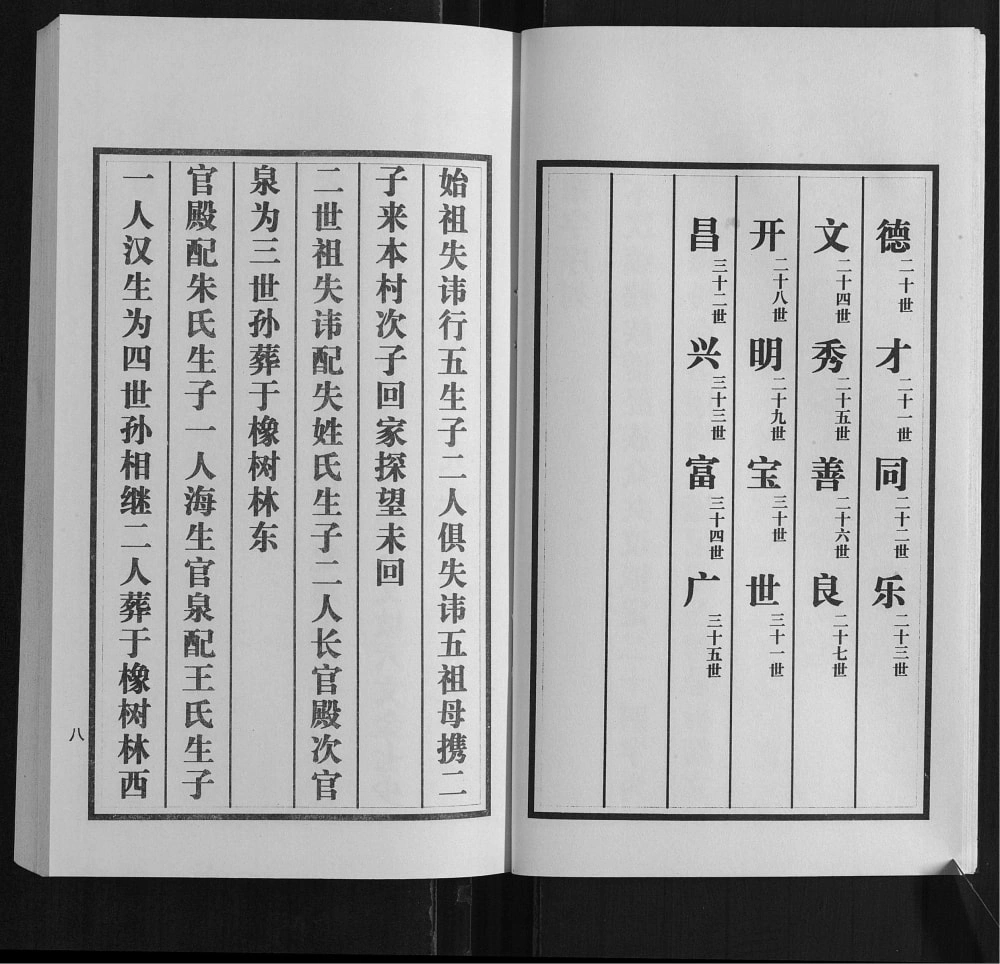 德二十世才二十一世同二十二世乐二十三世
文二十四世秀二十五世善二十六世良二十七世
开二十八世明二十九世宝三十世世三十一世
昌三十二世兴三十三世富三十四世广三十五世
始祖失讳行五生子二人俱失讳五祖母携二
子来本村次子回家探望未回
二世祖失讳配失姓氏生子二人长官殿次官
泉为三世孙葬于橡树林东
官殿配朱氏生子一人海生官泉配王氏生子
一人汉生为四世孙相继二人葬于橡树林西
八